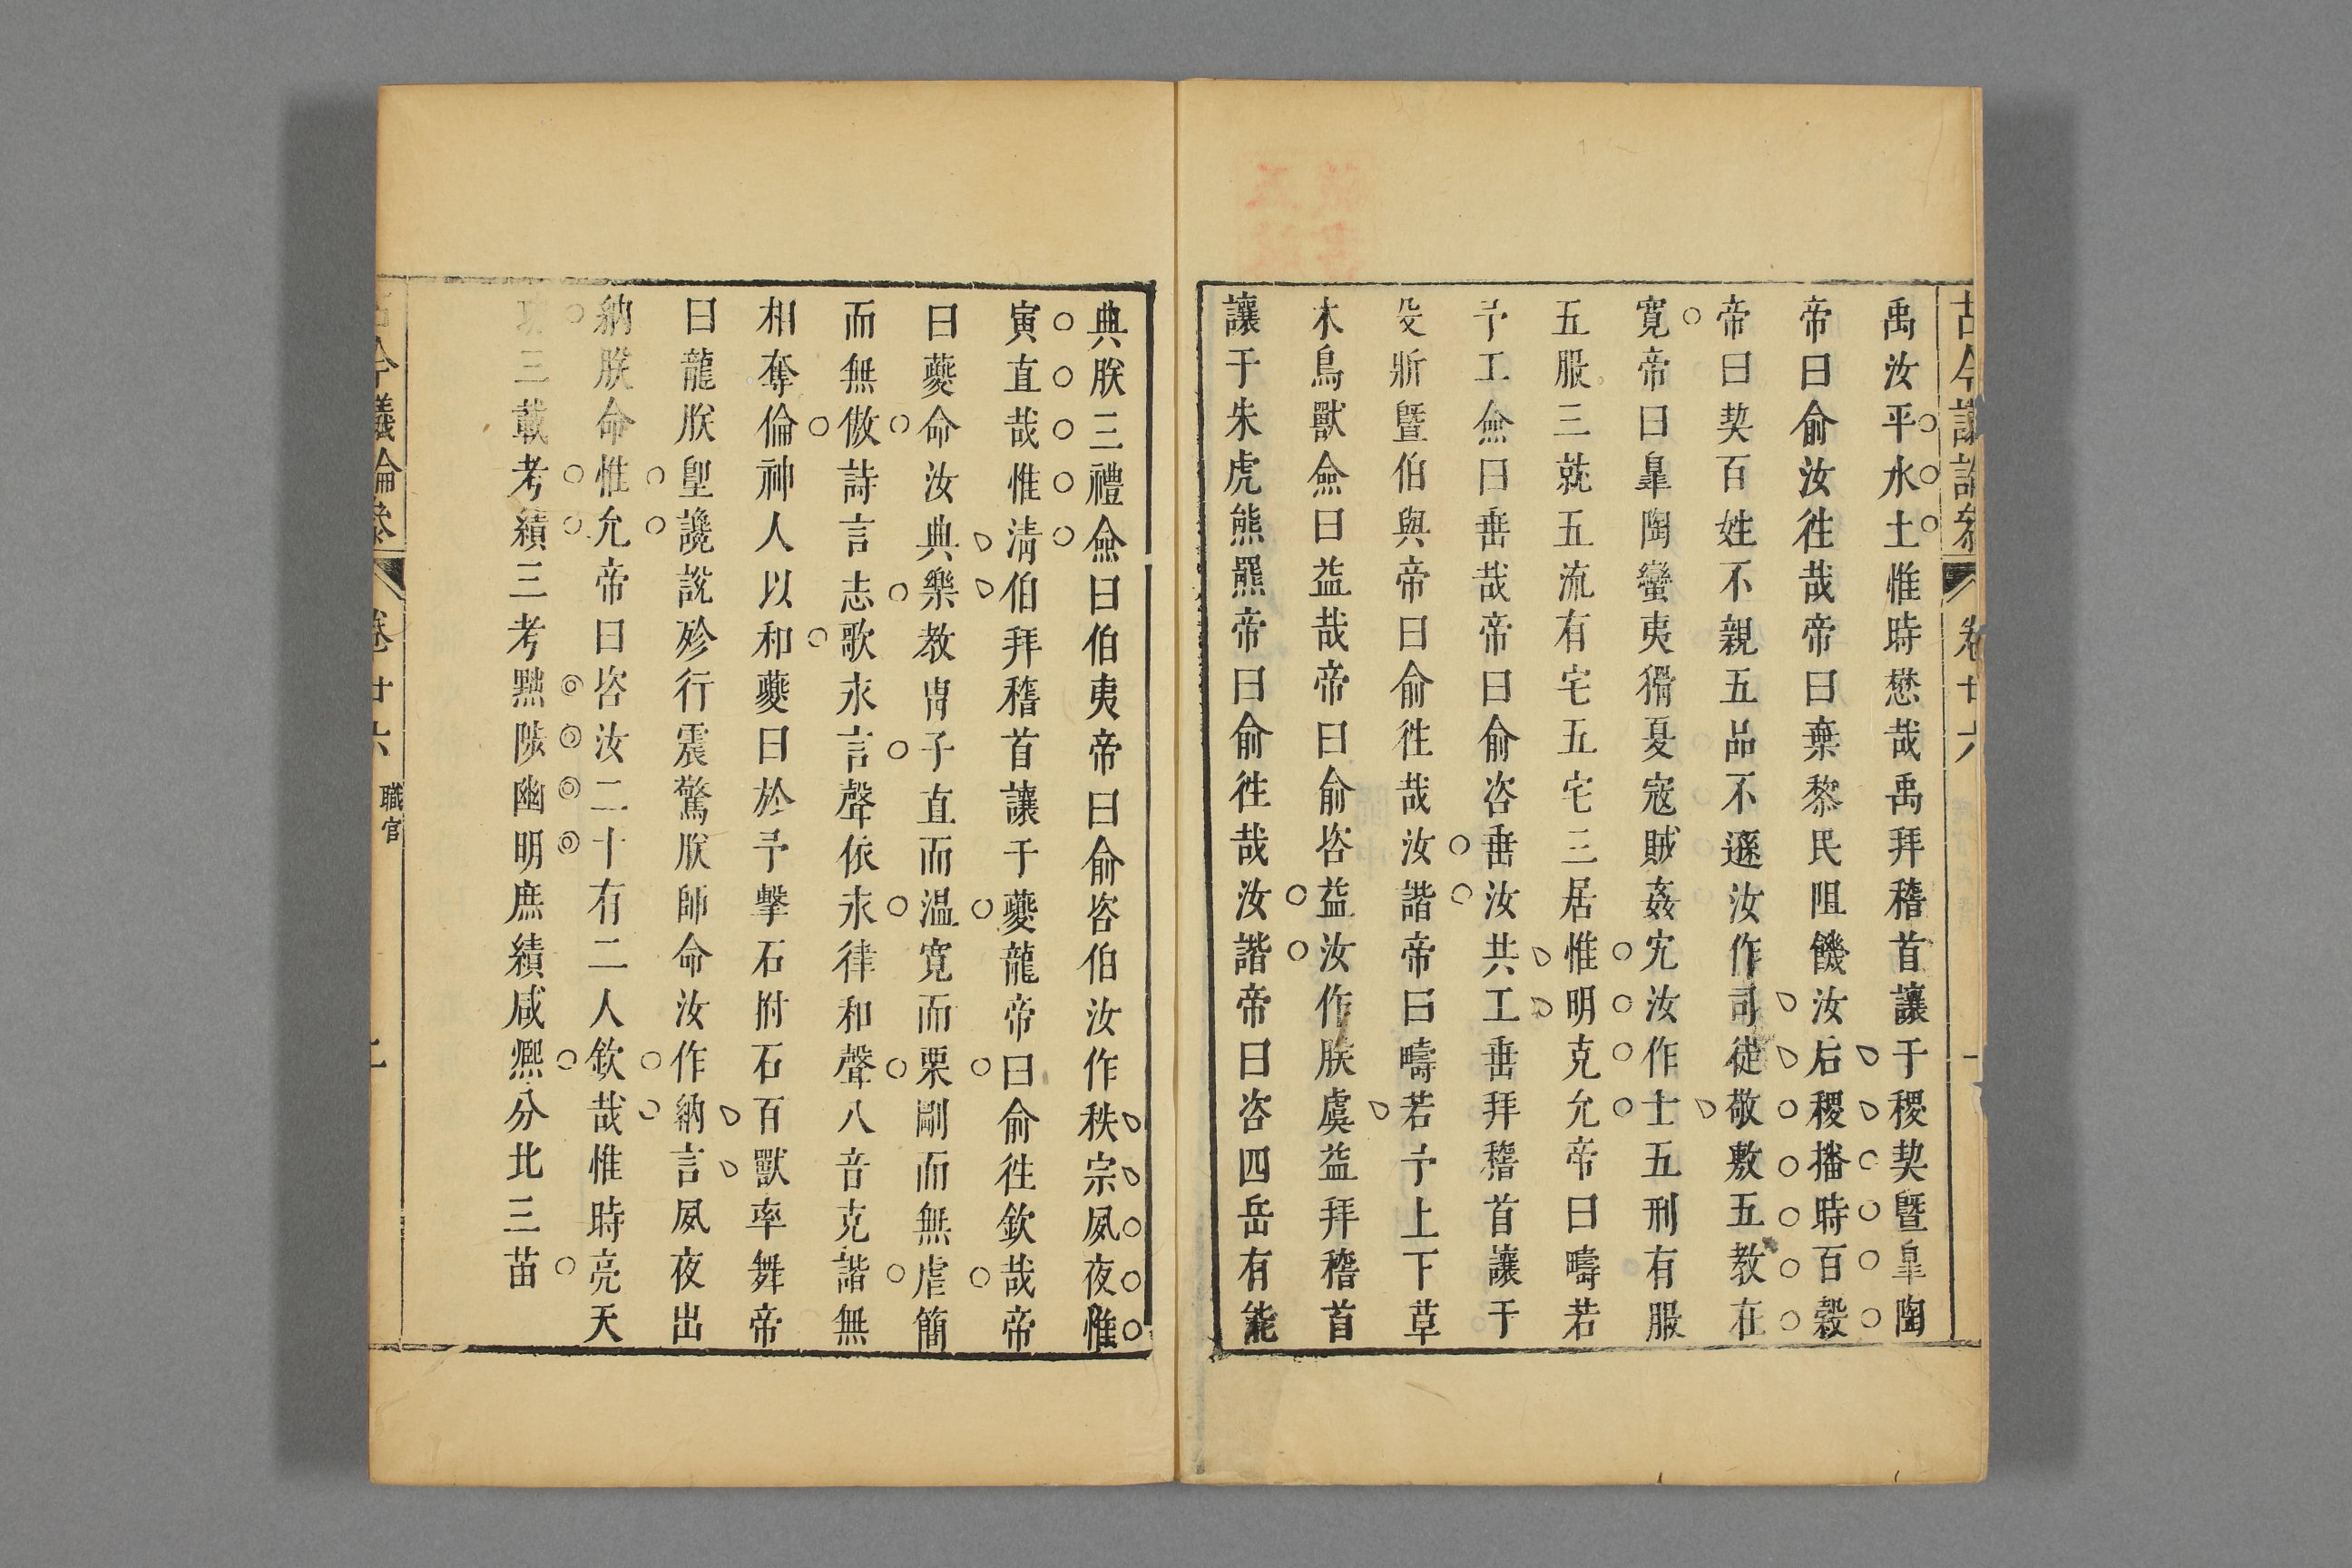 古今議論參 卷廿六
禹汝平水土惟時懋哉禹拜稽首讓于稷契曁皐陶
帝曰俞汝徃哉帝曰棄黎民阻饑汝后稷播時百穀
帝曰契百姓不親五品不遜汝作司徒敬敷五教在
寛帝曰皐陶蠻夷猾夏宼賊姦宄汝作士五刑有服
五服三就五流有宅五宅三居惟明克允帝曰疇若
予工僉曰垂哉帝曰俞咨垂汝共工垂拜稽首讓于
殳斨曁伯與帝曰俞徃哉汝諧帝曰疇若予上下草
木鳥獸僉曰益哉帝曰俞咨益汝作朕虞益拜稽首
讓于朱虎熊羆帝曰俞徃哉汝諧帝曰咨四岳有能
典朕三禮僉曰伯夷帝曰俞咨伯汝作秩宗夙夜惟
寅直哉惟淸伯拜稽首讓于夔龍帝曰俞徃欽哉帝
曰夔命汝典樂教胄子直而温寛而栗剛而無虐簡
而無傲詩言志歌永言聲依永律和聲八音克諧無
相奪倫神人以和夔曰於予擊石拊石百獸率舞帝
曰龍朕堲讒說殄行震驚朕師命汝作納言夙夜出
納朕命惟允帝曰咨汝二十有二人欽哉惟時亮天
功三載考績三考黜陟幽明庶績咸熈分北三苗
古今議論參 卷廿六 職官